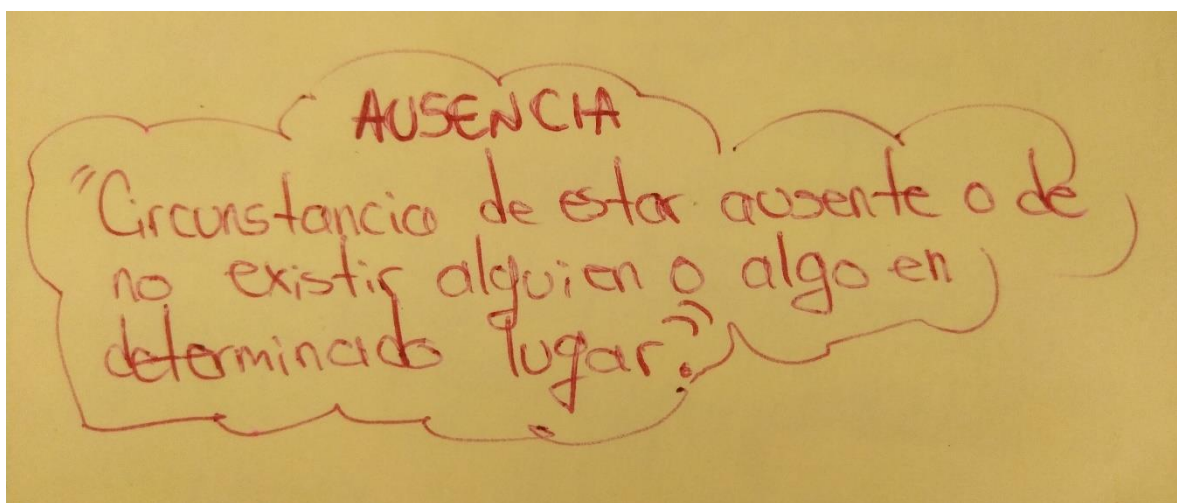 AUSENCIA
"Circunstancia de estar ausente o de
no existir alguien o algo en
determinado lugar."